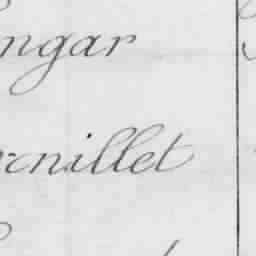 ngar
rnillet